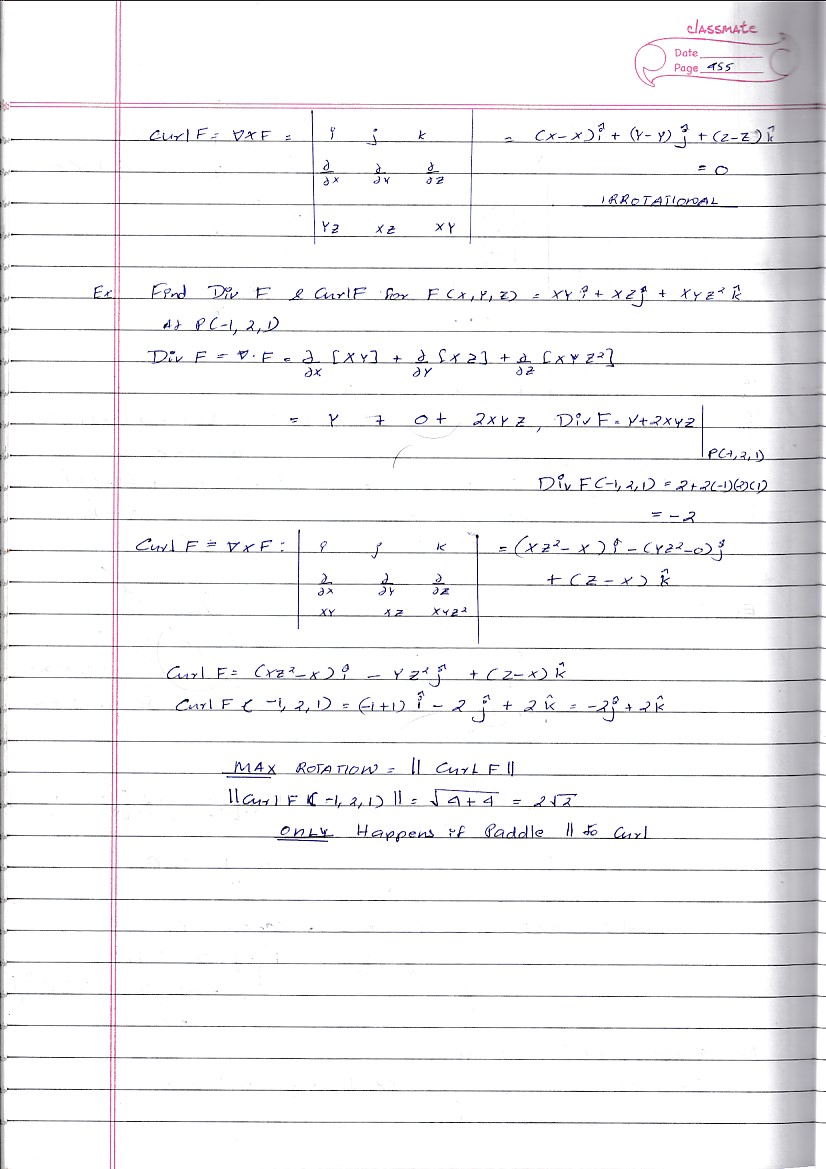 classmate
Date
Page 455
Curl F = ∇×F = | î ĵ k | = (x-x)î + (y-y)ĵ + (z-z)k̂
∂/∂x ∂/∂y ∂/∂z = 0
IRROTATIONAL
yz xz xy
Ex Find Div F & Curl F for F(x,y,z) = xyî + xzĵ + xyz² k̂
At P(-1,2,1)
Div F = ∇·F = ∂/∂x [xy] + ∂/∂y [xz] + ∂/∂z [xyz²]
= y + 0 + 2xyz, Div F = y+2xyz |
P(-1,2,1)
Div F(-1,2,1) = 2+2(-1)(2)(1)
= -2
Curl F = ∇×F : | î ĵ k | = (xz²-x)î - (yz²-0)ĵ
∂/∂x ∂/∂y ∂/∂z + (z-x) k̂
xy xz xyz²
Curl F = (xz²-x)î - yz²ĵ + (z-x)k̂
Curl F (-1,2,1) = (-1+1)î - 2ĵ + 2k̂ = -2ĵ + 2k̂
MAX ROTATION = || Curl F ||
|| Curl F (-1,2,1) || = √4+4 = 2√2
ONLY Happens if Paddle || to Curl